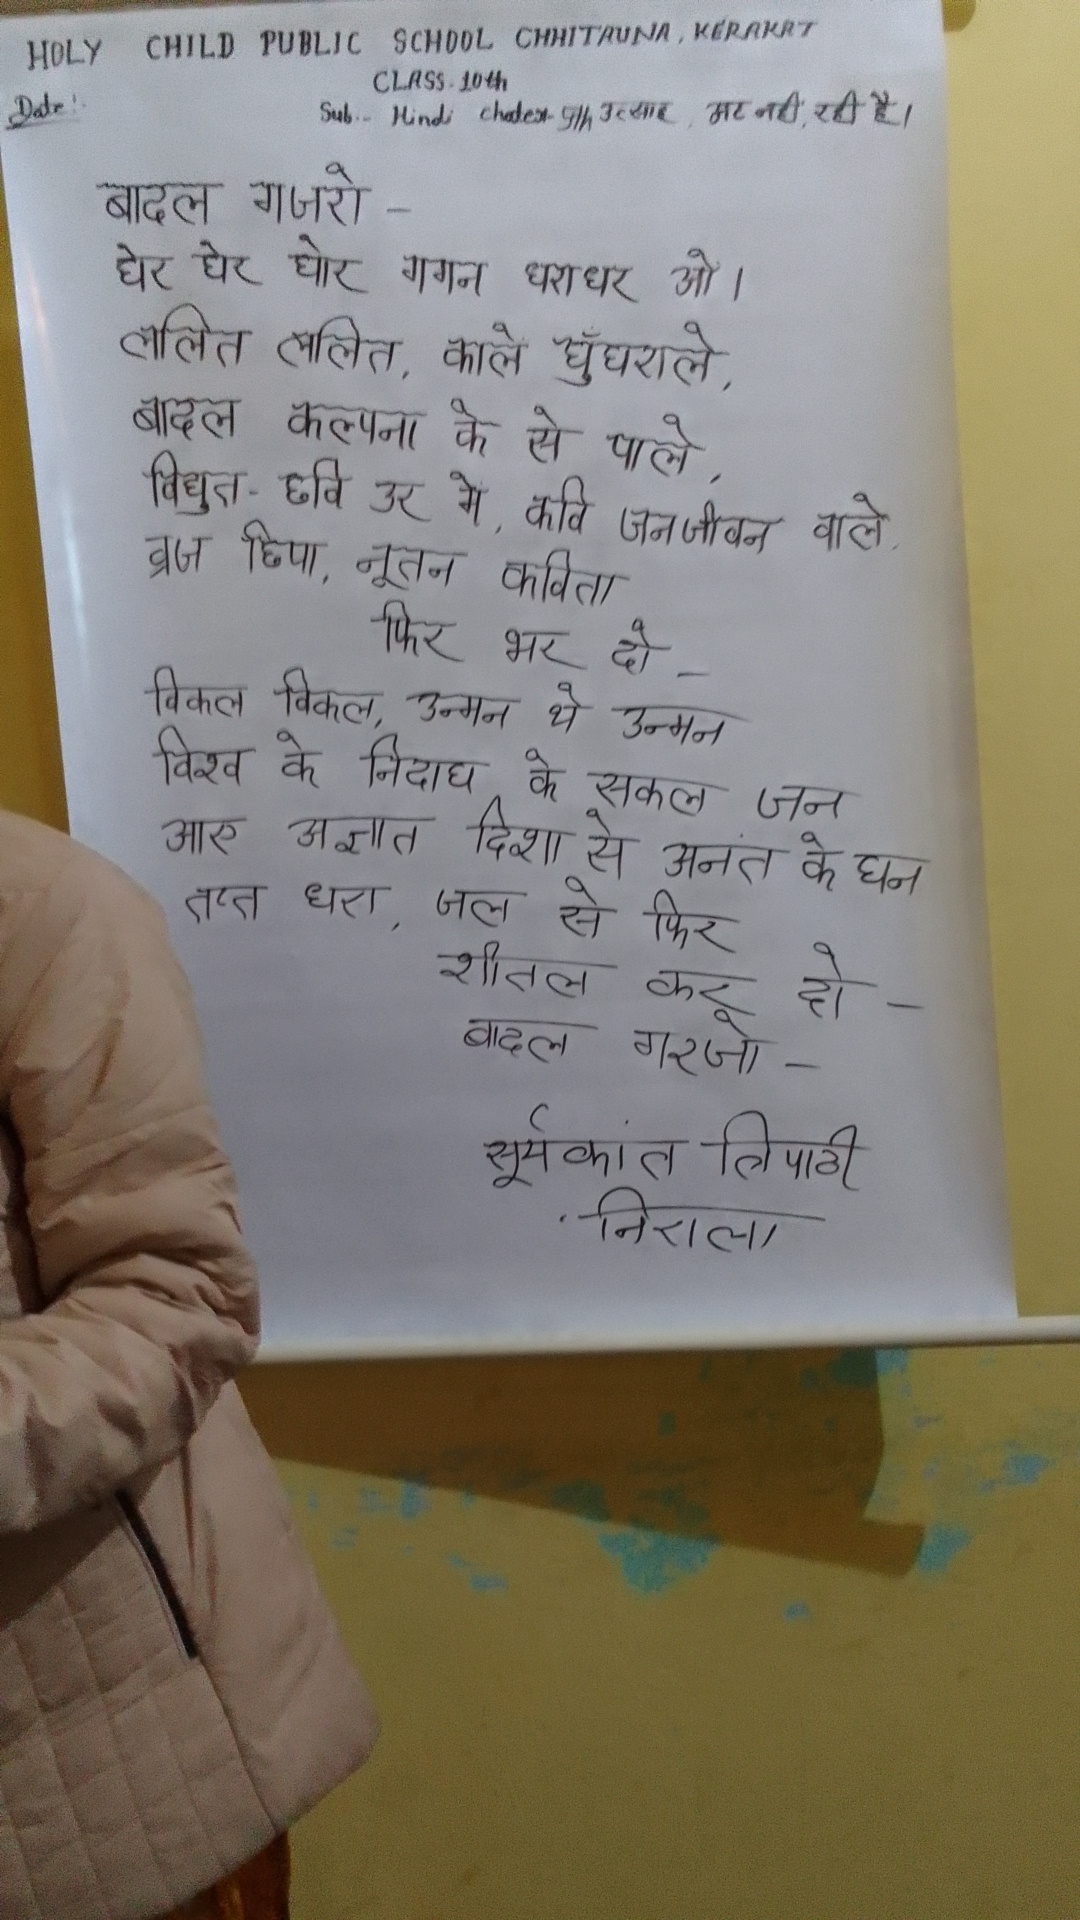 HOLY CHILD PUBLIC SCHOOL CHHITAUNA, KERAKAT
CLASS-10th
Date:-
Sub.- Hindi chater- 5th उत्साह, अट नहीं रही है।
बादल गजरो -
घेर घेर घोर गगन धराधर ओ।
ललित ललित, काले घुँघराले,
बादल कल्पना के से पाले,
विधुत- छवि उर मे, कवि जनजीवन वाले,
व्रज छिपा, नूतन कविता
फिर भर दो -
विकल विकल, उन्मन थे उन्मन
विश्व के निदाघ के सकल जन
आए अज्ञात दिशा से अनंत के घन
तप्त धरा, जल से फिर
शीतल कर दो -
बादल गरजो -
सूर्यकांत त्रिपाठी
निराला